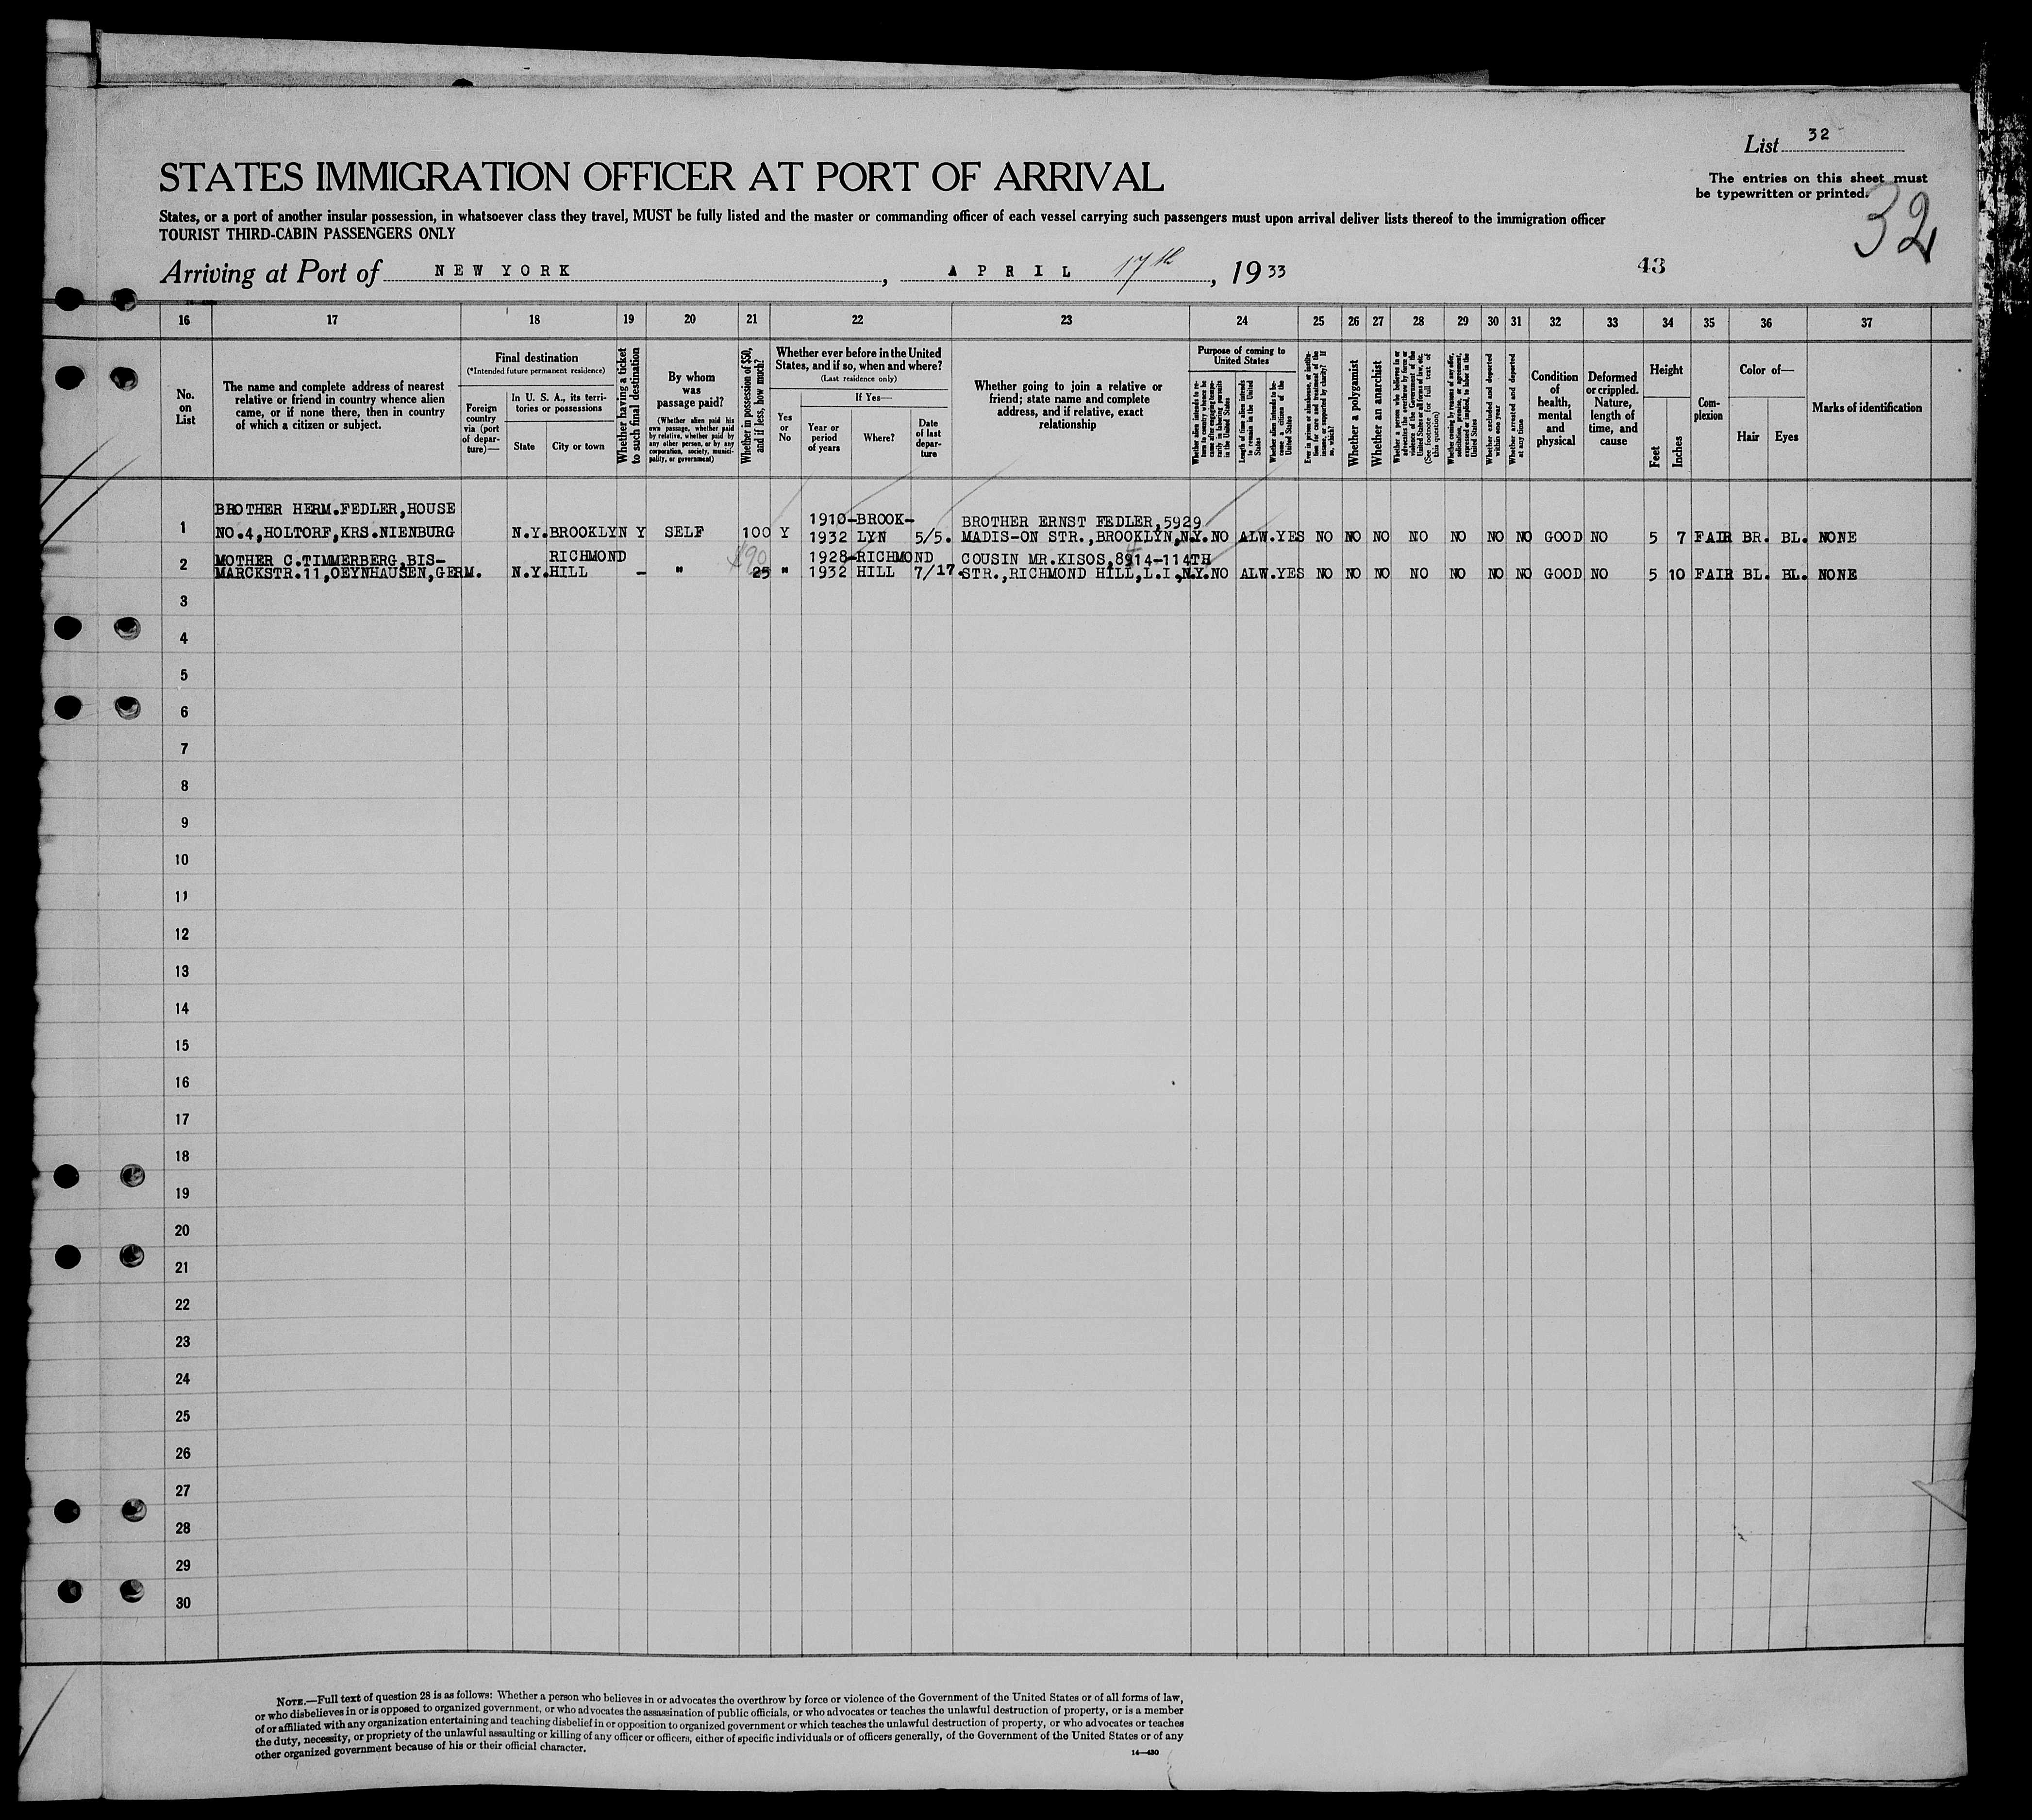 List 32
STATES IMMIGRATION OFFICER AT PORT OF ARRIVAL
The entries on this sheet must
be typewritten or printed.
32
States, or a port of another insular possession, in whatsoever class they travel, MUST be fully listed and the master or commanding officer of each vessel carrying such passengers must upon arrival deliver lists thereof to the immigration officer
TOURIST THIRD-CABIN PASSENGERS ONLY
Arriving at Port of NEW YORK, APRIL 17th, 1933
43
16 17 18 19 20 21 22 23 24 25 26 27 28 29 30 31 32 33 34 35 36 37
No.
on
List
The name and complete address of nearest
relative or friend in country whence alien
came, or if none there, then in country
of which a citizen or subject.
Final destination
(*Intended future permanent residence)
Foreign
country
via (port
of depar-
ture)—
In U. S. A., its terri-
tories or possessions
State
City or town
Whether having a ticket
to such final destination
By whom
was
passage paid?
(Whether alien paid his
own passage, whether paid
by relative, whether paid by
any other person, or by any
corporation, society, munici-
pality, or government)
Whether in possession of $50,
and if less, how much?
Whether ever before in the United
States, and if so, when and where?
(Last residence only)
Yes
or
No
If Yes—
Year or
period
of years
Where?
Date
of last
depar-
ture
Whether going to join a relative or
friend; state name and complete
address, and if relative, exact
relationship
Purpose of coming to
United States
Length of time alien intends
to remain in the United
States
Whether alien intends to be-
come a citizen of the
United States
Whether a polygamist
Whether an anarchist
Whether excluded and deported
within one year
Whether arrested and deported
at any time
Condition
of
health,
mental
and
physical
Deformed
or crippled.
Nature,
length of
time, and
cause
Height
Feet
Inches
Com-
plexion
Color of—
Hair
Eyes
Marks of identification
BROTHER HERM.FEDLER,HOUSE 1910-BROOK- BROTHER ERNST FEDLER,5929
1 NO.4,HOLTORF,KRS.NIENBURG N.Y. BROOKLYN Y SELF 100 Y 1932 LYN 5/5. MADIS-ON STR.,BROOKLYN,N.Y. NO ALW. YES NO NO NO NO NO NO NO GOOD NO 5 7 FAIR BR. BL. NONE
MOTHER C.TIMMERBERG,BIS- RICHMOND $90 1928-RICHMOND COUSIN MR.KISOS,8914-114TH
2 MARCKSTR.11,OEYNHAUSEN,GERM. N.Y. HILL - " 25 " 1932 HILL 7/17. STR.,RICHMOND HILL,L.I.,N.Y. NO ALW. YES NO NO NO NO NO NO NO GOOD NO 5 10 FAIR BL. BL. NONE
3
4
5
6
7
8
9
10
11
12
13
14
15
16
17
18
19
20
21
22
23
24
25
26
27
28
29
30
NOTE.—Full text of question 28 is as follows: Whether a person who believes in or advocates the overthrow by force or violence of the Government of the United States or of all forms of law,
or who disbelieves in or is opposed to organized government, or who advocates the assassination of public officials, or who advocates or teaches the unlawful destruction of property, or is a member
of or affiliated with any organization entertaining and teaching disbelief in or opposition to organized government or which teaches the unlawful destruction of property, or who advocates or teaches
the duty, necessity, or propriety of the unlawful assaulting or killing of any officer or officers, either of specific individuals or of officers generally, of the Government of the United States or of any
other organized government because of his or their official character.
14—430